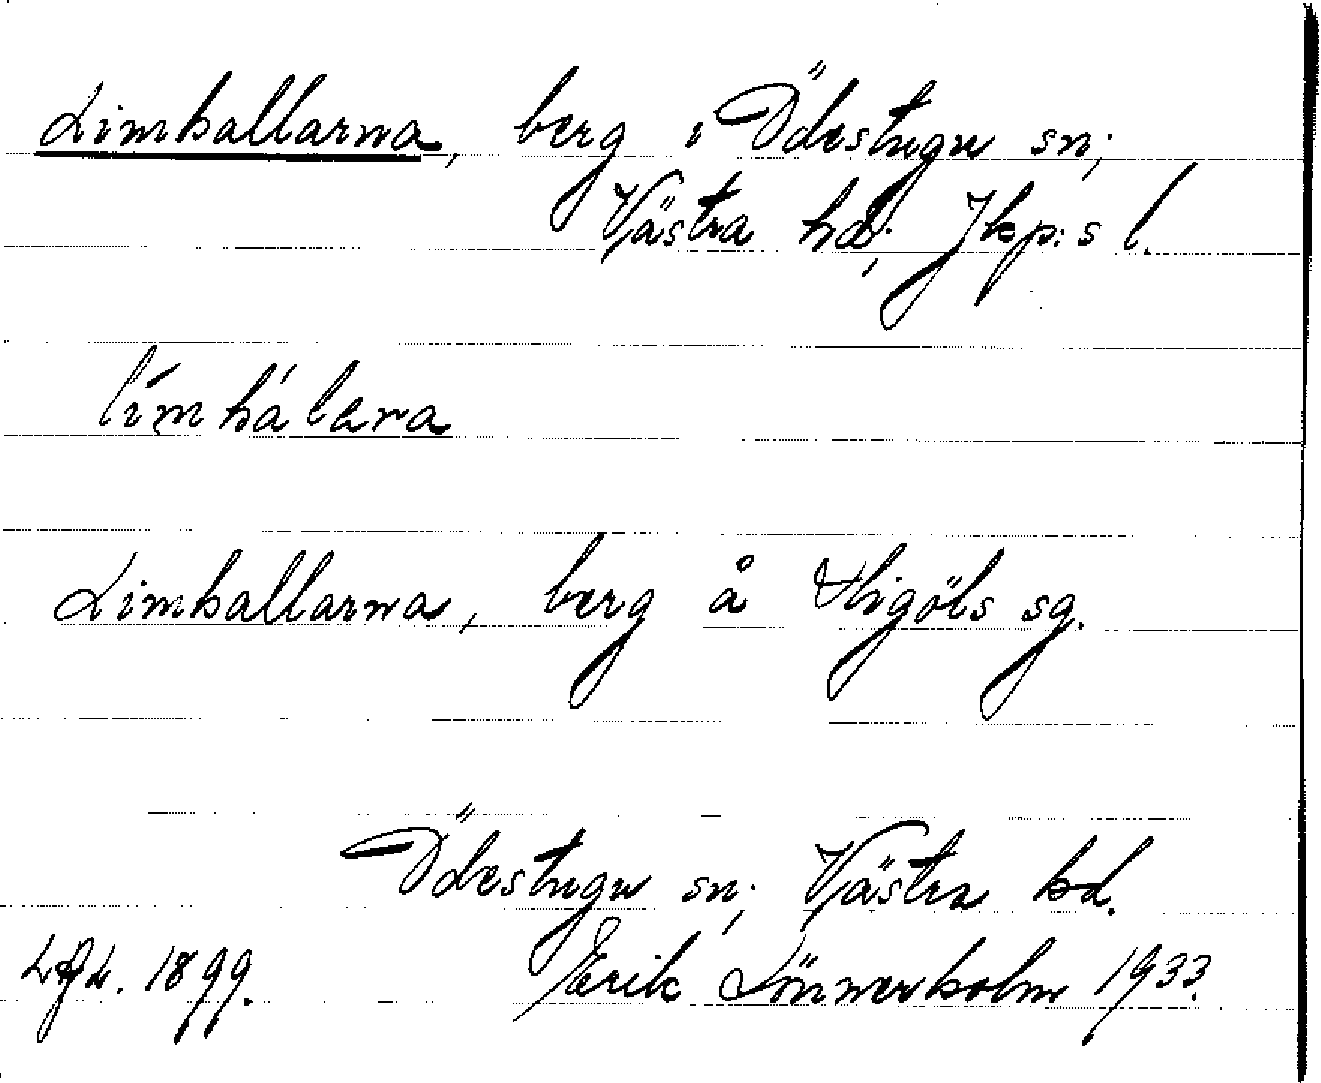 Limhallarna, berg i Ödestugu sn;
Västra hd; Jkp:s l.
límhálana
Limhallarna, berg å Stigöls sg.
Ödestugu sn; Västra hd.
1899. Erik Lönnerholm 1933.